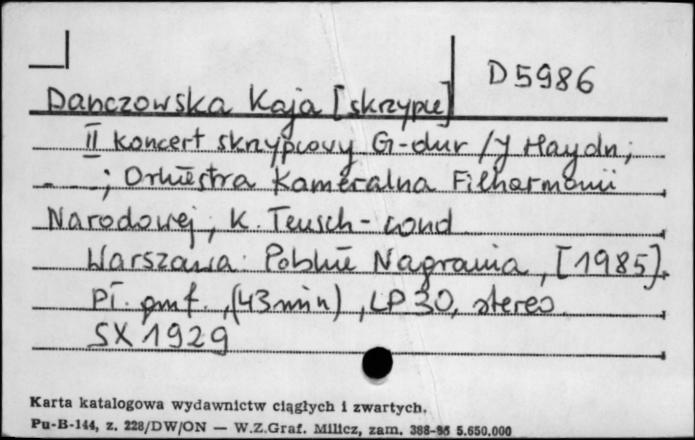 D5986
Danczowska Kaja [skrzypce]
II koncert skrzypcowy G-dur / J Haydn;
- ; Orkiestra Kameralna Filharmonii
Narodowej, K. Teusch - cond
Warszawa: Polskie Nagrania, [1985].
Pł. gmf., (43 min), LP 30, stereo
SX 1929
Karta katalogowa wydawnictw ciągłych i zwartych.
Pu-B-144, z. 228/DW/ON — W.Z.Graf. Milicz, zam. 388-85 5.650.000